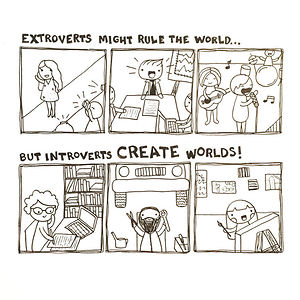 EXTROVERTS MIGHT RULE THE WORLD...
BUT INTROVERTS CREATE WORLDS!